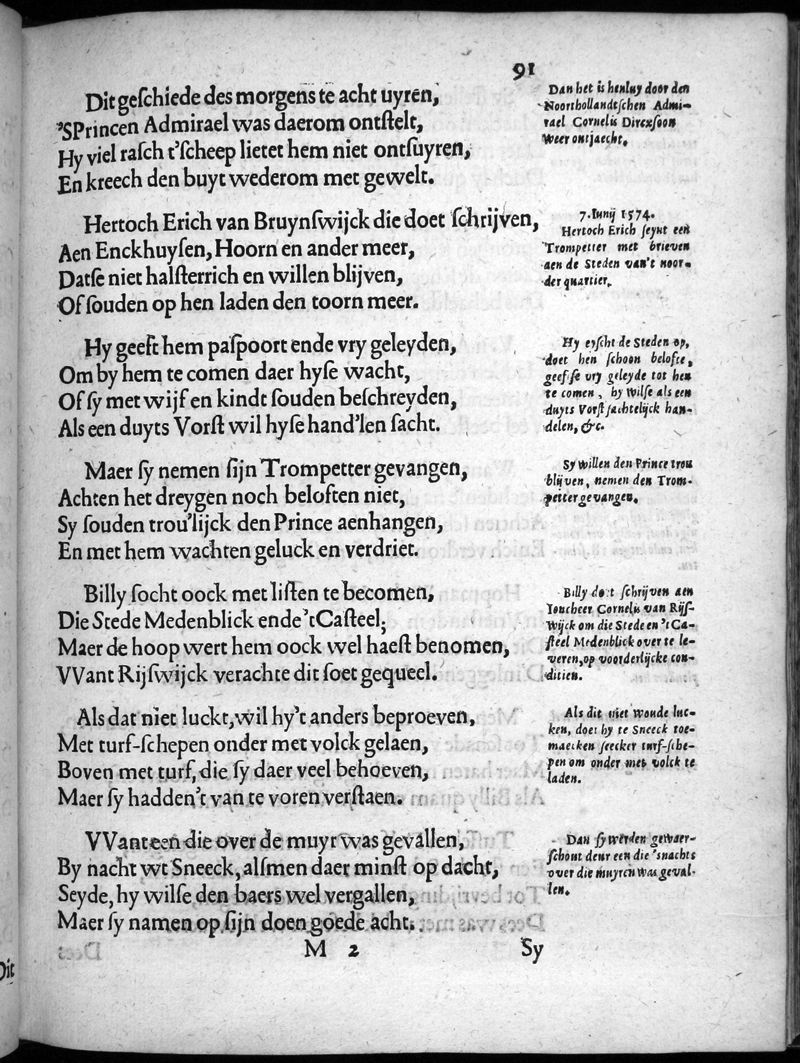 91
Dit geſchiede des morgens te acht uyren,
'SPrincen Admirael was daerom ontſtelt,
Hy viel raſch t'ſcheep lietet hem niet ontſuyren,
En kreech den buyt wederom met gewelt.
Dan het is henluy door den
Noorthollandtſchen Admi-
rael Cornelis Dircxſoon
Weer ontjaecht.
Hertoch Erich van Bruynſwijck die doet ſchrijven,
Aen Enckhuyſen, Hoorn en ander meer,
Datſe niet halſterrich en willen blijven,
Of ſouden op hen laden den toorn meer.
7. Iunij 1574.
Hertoch Erich ſeynt een
Trompetter met brieven
aen de Steden van't noor-
der quartier.
Hy geeft hem paſpoort ende vry geleyden,
Om by hem te comen daer hyſe wacht,
Of ſy met wijf en kindt ſouden beſchreyden,
Als een duyts Vorſt wil hyſe hand'len ſacht.
Hy eyſcht de Steden op,
doet hen ſchoon belofte,
geefſe vry geleyde tot hen
te comen, hy wilſe als een
duyts Vorſt ſachtelijck han-
delen, &c.
Maer ſy nemen ſijn Trompetter gevangen,
Achten het dreygen noch beloften niet,
Sy ſouden trou'lijck den Prince aenhangen,
En met hem wachten geluck en verdriet.
Sy willen den Prince trou
blijven, nemen den Trom-
petter gevangen.
Billy ſocht oock met liſten te becomen,
Die Stede Medenblick ende 'tCaſteel,
Maer de hoop wert hem oock wel haeſt benomen,
VVant Rijſwijck verachte dit ſoet gequeel.
Billy doet ſchrijven aen
Ioncheer Cornelis van Rijſ-
wijck om die Stede en 't Ca-
ſteel Medenblick over te le-
veren, op voorderlijcke con-
ditien.
Als dat niet luckt, wil hy't anders beproeven,
Met turf-ſchepen onder met volck gelaen,
Boven met turf, die ſy daer veel behoeven,
Maer ſy hadden't van te voren verſtaen.
Als dit niet woude luc-
ken, doet hy te Sneeck toe-
maecken ſeecker turf-ſche-
pen om onder met volck te
laden.
VVant een die over de muyr was gevallen,
By nacht wt Sneeck, alſmen daer minſt op dacht,
Seyde, hy wilſe den baers wel vergallen,
Maer ſy namen op ſijn doen goede acht.
Dan ſy werden gewaer-
ſchout deur een die 'snachts
over die muyren was geval-
len.
M 2
Sy
Dit